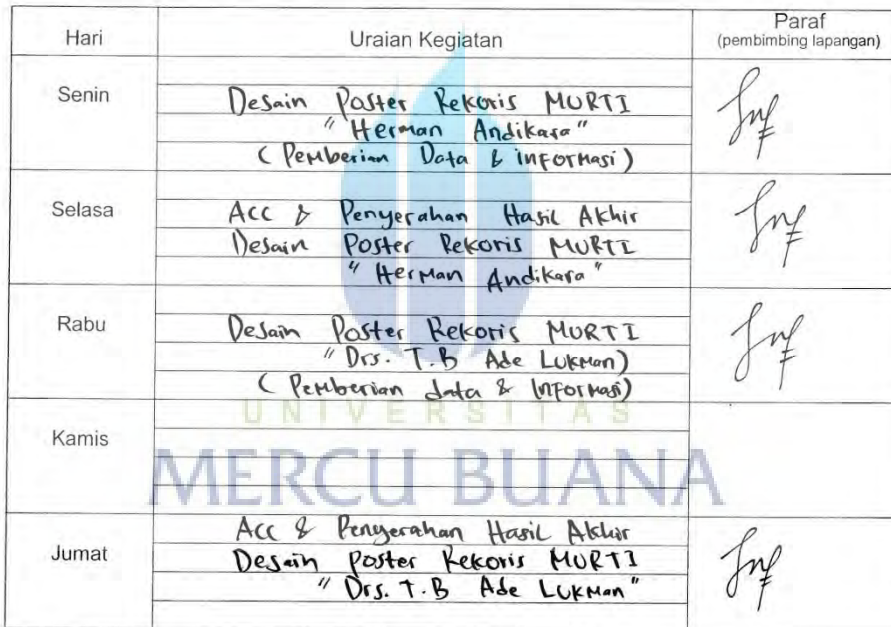 Hari Uraian Kegiatan Paraf
(pembimbing lapangan)
Senin
Desain Poster Rekoris MURTI
"Herman Andikara"
(Pemberian Data & informasi)
Selasa
Acc & Penyerahan Hasil Akhir
Desain Poster Rekoris MURTI
"Herman Andikara"
Rabu
Desain Poster Rekoris MURTI
"Drs. T.B Ade Lukman)
(Pemberian data & Informasi)
UNIVERSITAS
Kamis
MERCU BUANA
Jumat
Acc & Penyerahan Hasil Akhir
Desain Poster Rekoris MURTI
"Drs. T.B Ade Lukman"